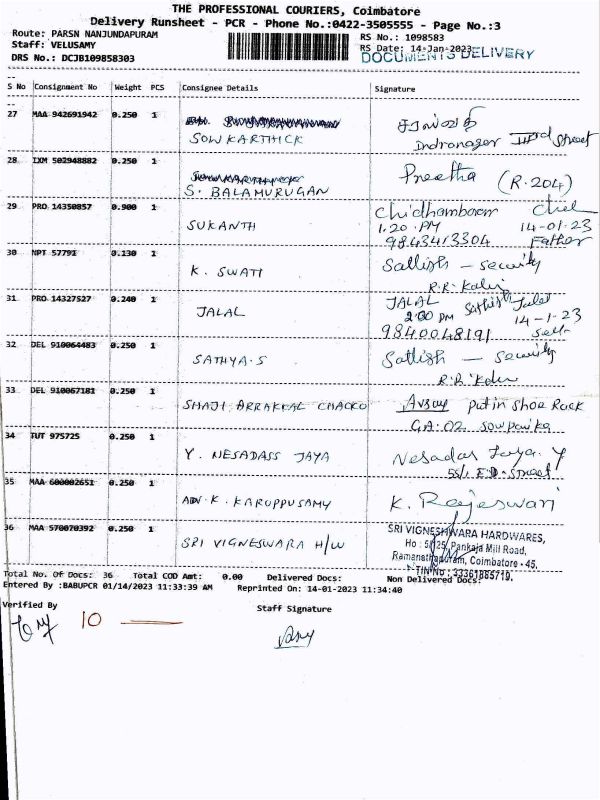 THE PROFESSIONAL COURIERS, Coimbatore
Delivery Runsheet - PCR - Phone No.:0422-3505555 - Page No.:3
Route: PARSN NANJUNDAPURAM
RS No.: 1098583
Staff: VELUSAMY
RS Date: 14-Jan-2023
DOCUMENTS DELIVERY
DRS No.: DCJB109858303
S No Consignment No Weight PCS Consignee Details Signature
27 MAA 942691942 0.250 1
SOWKARTHICK
Indranagar IIIrd Street
28 IXM 502948882 0.250 1
S. BALAMURUGAN
Preetha (R.204)
29 PRO 14350857 0.900 1
SUKANTH
Chidhambaram
1.20 PM 14-01-23
9843413304 Father
30 NPT 57791 0.130 1
K. SWATI
Sathish - Security
31 PRO 14327527 0.240 1
JALAL
JALAL Sathish Jalal
2:00 PM 14-1-23
9840048191 Self
32 DEL 910064483 0.250 1
SATHYA.S
Sathish - Security
33 DEL 910067181 0.250 1
SHAJI ARRAKKAL CHACKO
put in Shoe Rack
GA:02 Sowparika
34 TUT 975725 0.250 1
Y. NESADASS JAYA
Nesadas Jaya. Y
35 MAA 600002651 0.250 1
ADV.K. KARUPPUSAMY
K. Rajeswari
36 MAA 570070392 0.250 1
SRI VIGNESWARA H/W
SRI VIGNESHWARA HARDWARES,
Pankaja Mill Road,
Ramanathapuram, Coimbatore - 45.
TIN No : 33361885719.
Total No. Of Docs: 36 Total COD Amt: 0.00 Delivered Docs: Non Delivered Docs:
Entered By :BABUPCR 01/14/2023 11:33:39 AM Reprinted On: 14-01-2023 11:34:40
Verified By
Staff Signature
10